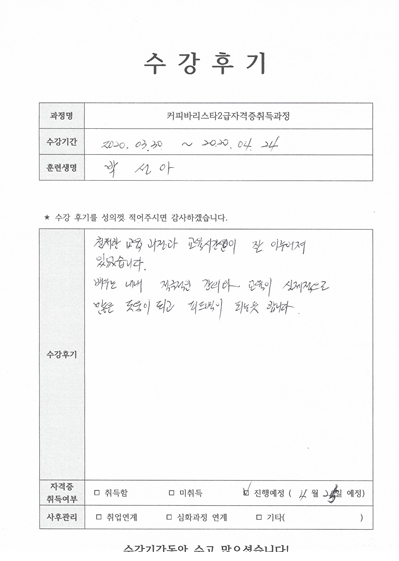 수강후기
과정명 커피바리스타2급자격증취득과정
수강기간 2020. 03. 30 ~ 2020. 04. 24
훈련생명 박선아
★ 수강 후기를 성의껏 적어주시면 감사하겠습니다.
수강후기
교육 과정과 교육시간이 잘 이루어져
있었습니다.
배우는 내내 적극적인 교육이 실제적으로
많은 도움이 되고 되는듯 합니다.
자격증
취득여부 □ 취득함 □ 미취득 ☑ 진행예정 ( 4월 25일 예정)
사후관리 □ 취업연계 □ 심화과정 연계 □ 기타( )
수강기간동안 수고 많으셨습니다!